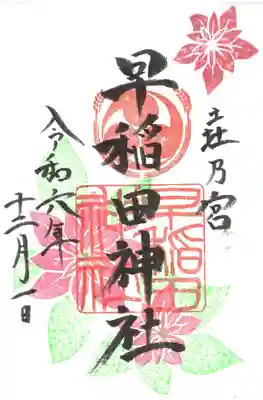 莊乃宮
早稲田神社
令和六年
十二月一日
早稲田神社